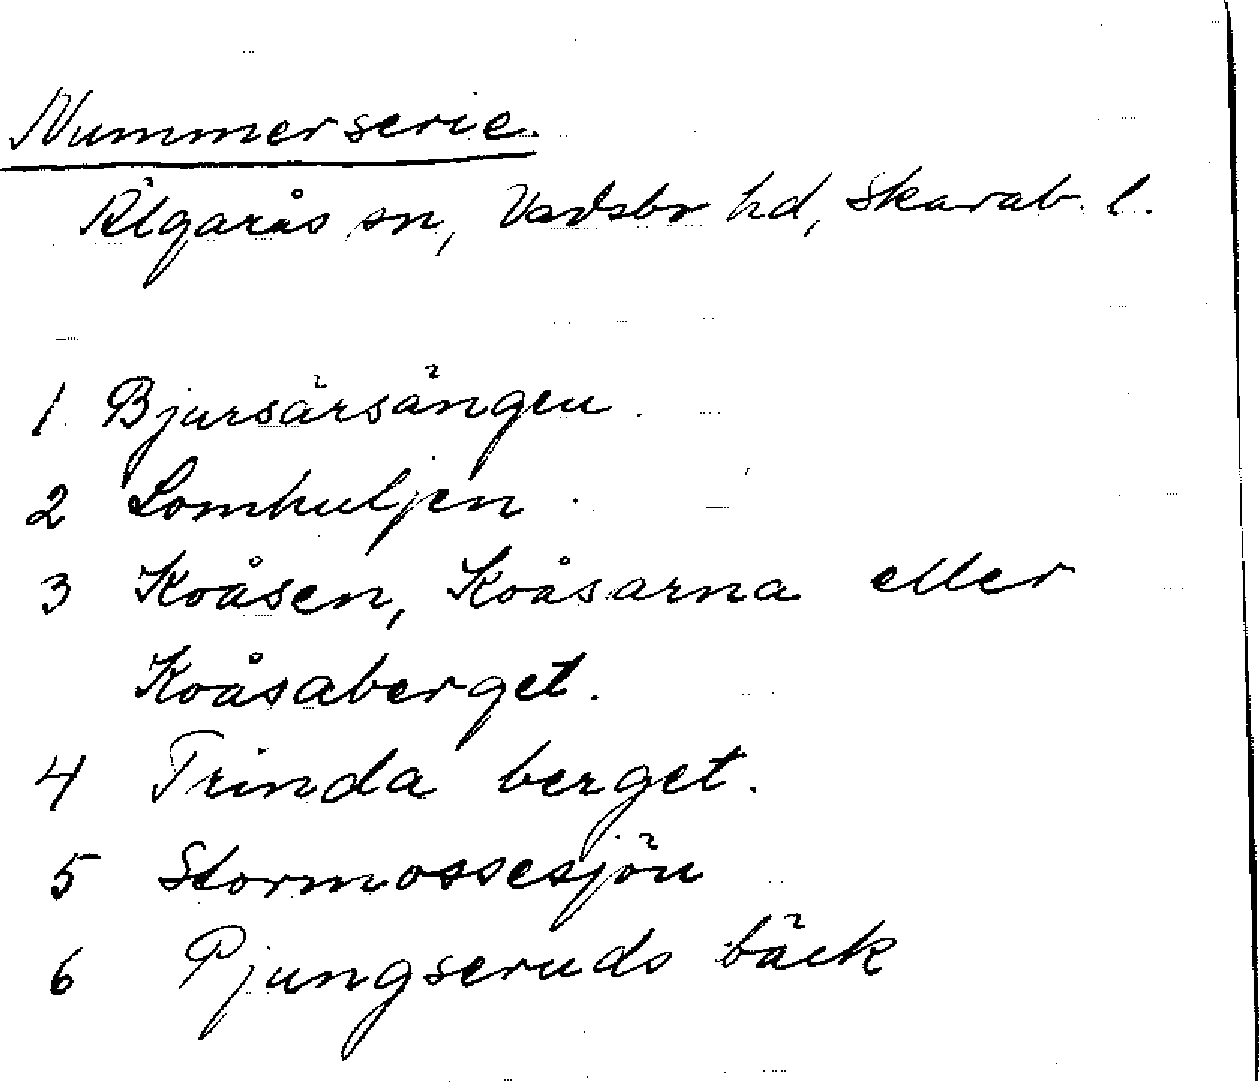 Nummerserie.
Älgarås sn, Vadsbo hd, Skarab. l.
1 Bjursärsängen.
2 Lomhuljen.
3 Koåsen, Koåsarna eller
Koåsaberget.
4 Trinda berget.
5 Stormossesjön
6 Pjungseruds bäck